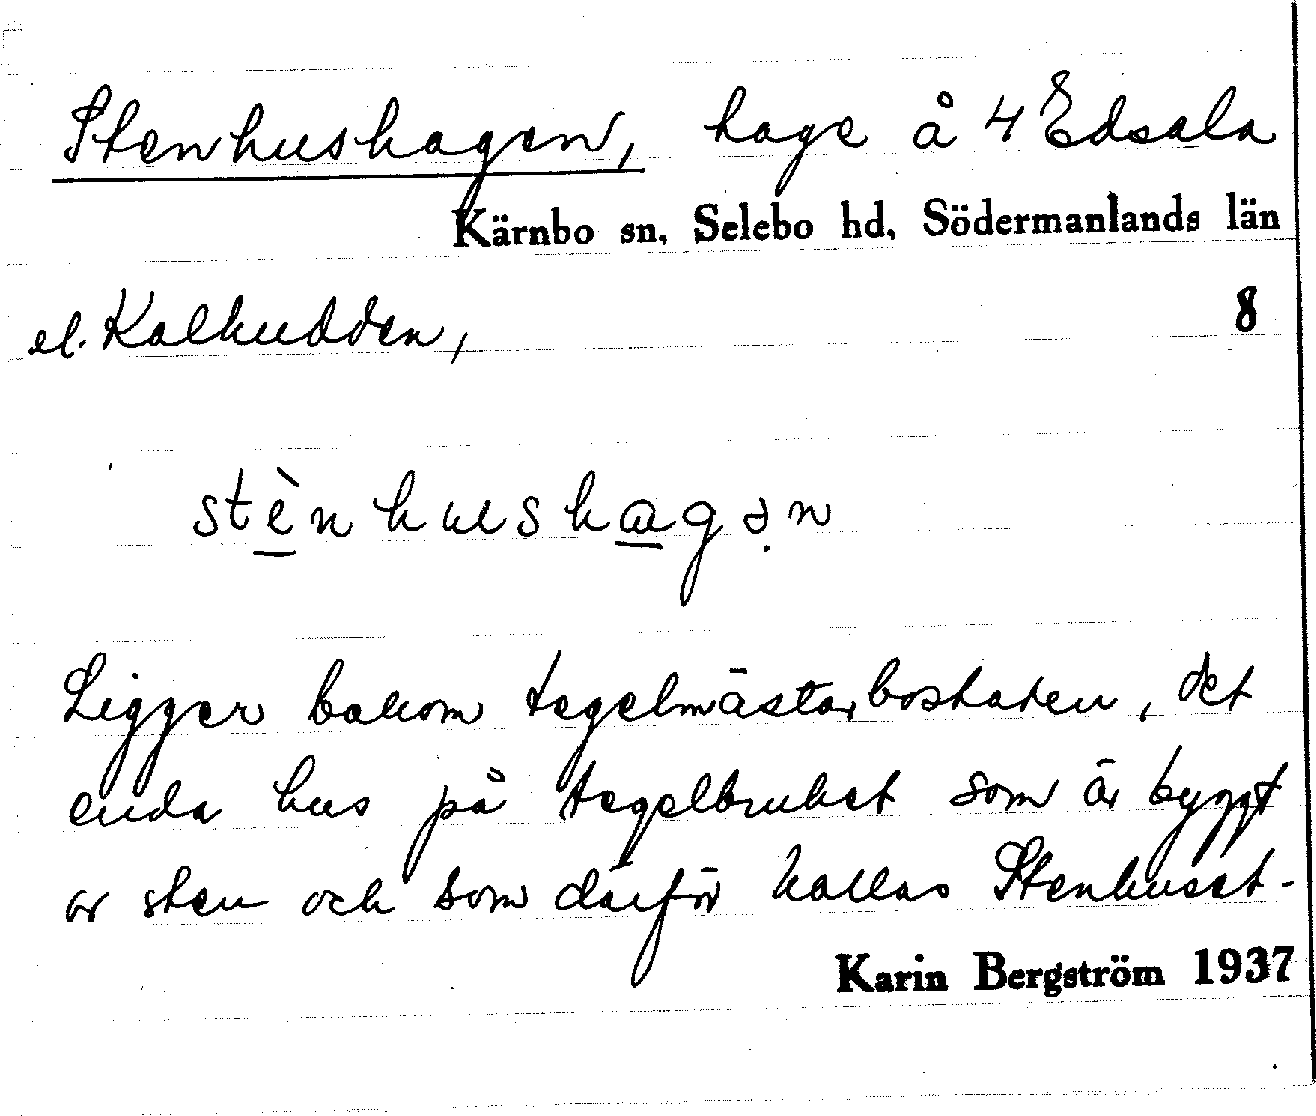 Stenhushagen, hage å 4 Edsala
Kärnbo sn, Selebo hd, Södermanlands län
el. Kalhudden,
8
stènhushagən
Ligger bakom tegelmästarbostaten, det
enda hus på tegelbruket som är byggt
av sten och som därför kallas Stenhuset-
Karin Bergström 1937